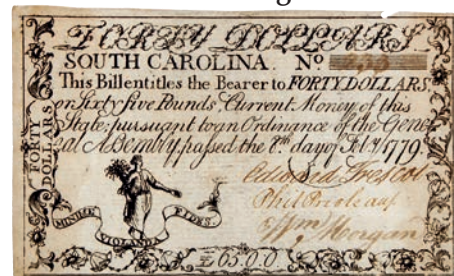 FORTY DOLLARS
SOUTH CAROLINA. No
This Bill entitles the Bearer to FORTY DOLLARS,
or Sixty five Pounds, Current Money of this
State; pursuant to an Ordinance of the Gene-
ral Assembly, passed the 8.th day of Feb.y 1779.
FORTY DOLLARS
MINIME VIOLANDA FIDES.
£65.0.0